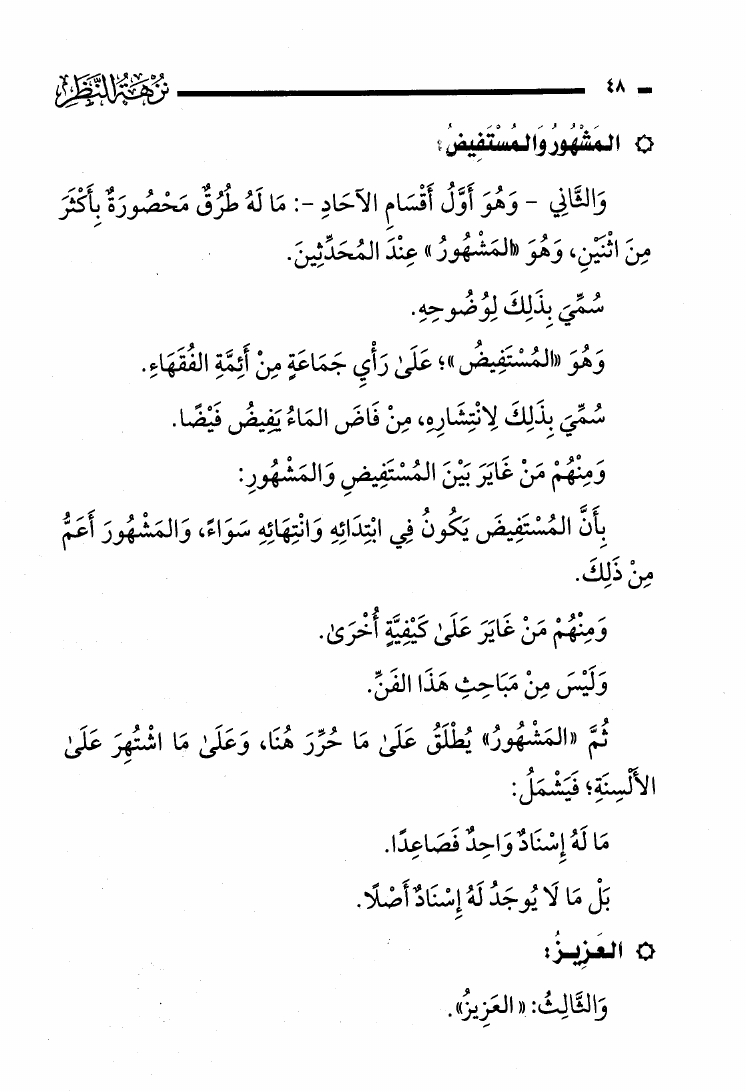 ٤٨ نُزْهَةُ النَّظَرِ
المَشْهُورُ وَالمُسْتَفِيضُ:
وَالثَّانِي - وَهُوَ أَوَّلُ أَقْسَامِ الآحَادِ -: مَا لَهُ طُرُقٌ مَحْصُورَةٌ بِأَكْثَرَ
مِنَ اثْنَيْنِ، وَهُوَ «المَشْهُورُ» عِنْدَ المُحَدِّثِينَ.
سُمِّيَ بِذَلِكَ لِوُضُوحِهِ.
وَهُوَ «المُسْتَفِيضُ»؛ عَلَىٰ رَأْيِ جَمَاعَةٍ مِنْ أَئِمَّةِ الفُقَهَاءِ.
سُمِّيَ بِذَلِكَ لِانْتِشَارِهِ، مِنْ فَاضَ المَاءُ يَفِيضُ فَيْضًا.
وَمِنْهُمْ مَنْ غَايَرَ بَيْنَ المُسْتَفِيضِ وَالمَشْهُورِ:
بِأَنَّ المُسْتَفِيضَ يَكُونُ فِي ابْتِدَائِهِ وَانْتِهَائِهِ سَوَاءً، وَالمَشْهُورَ أَعَمُّ
مِنْ ذَلِكَ.
وَمِنْهُمْ مَنْ غَايَرَ عَلَىٰ كَيْفِيَّةٍ أُخْرَىٰ.
وَلَيْسَ مِنْ مَبَاحِثِ هَذَا الفَنِّ.
ثُمَّ «المَشْهُورُ» يُطْلَقُ عَلَىٰ مَا حُرِّرَ هُنَا، وَعَلَىٰ مَا اشْتُهِرَ عَلَىٰ
الأَلْسِنَةِ؛ فَيَشْمَلُ:
مَا لَهُ إِسْنَادٌ وَاحِدٌ فَصَاعِدًا.
بَلْ مَا لَا يُوجَدُ لَهُ إِسْنَادٌ أَصْلًا.
العَزِيزُ:
وَالثَّالِثُ: «العَزِيزُ».